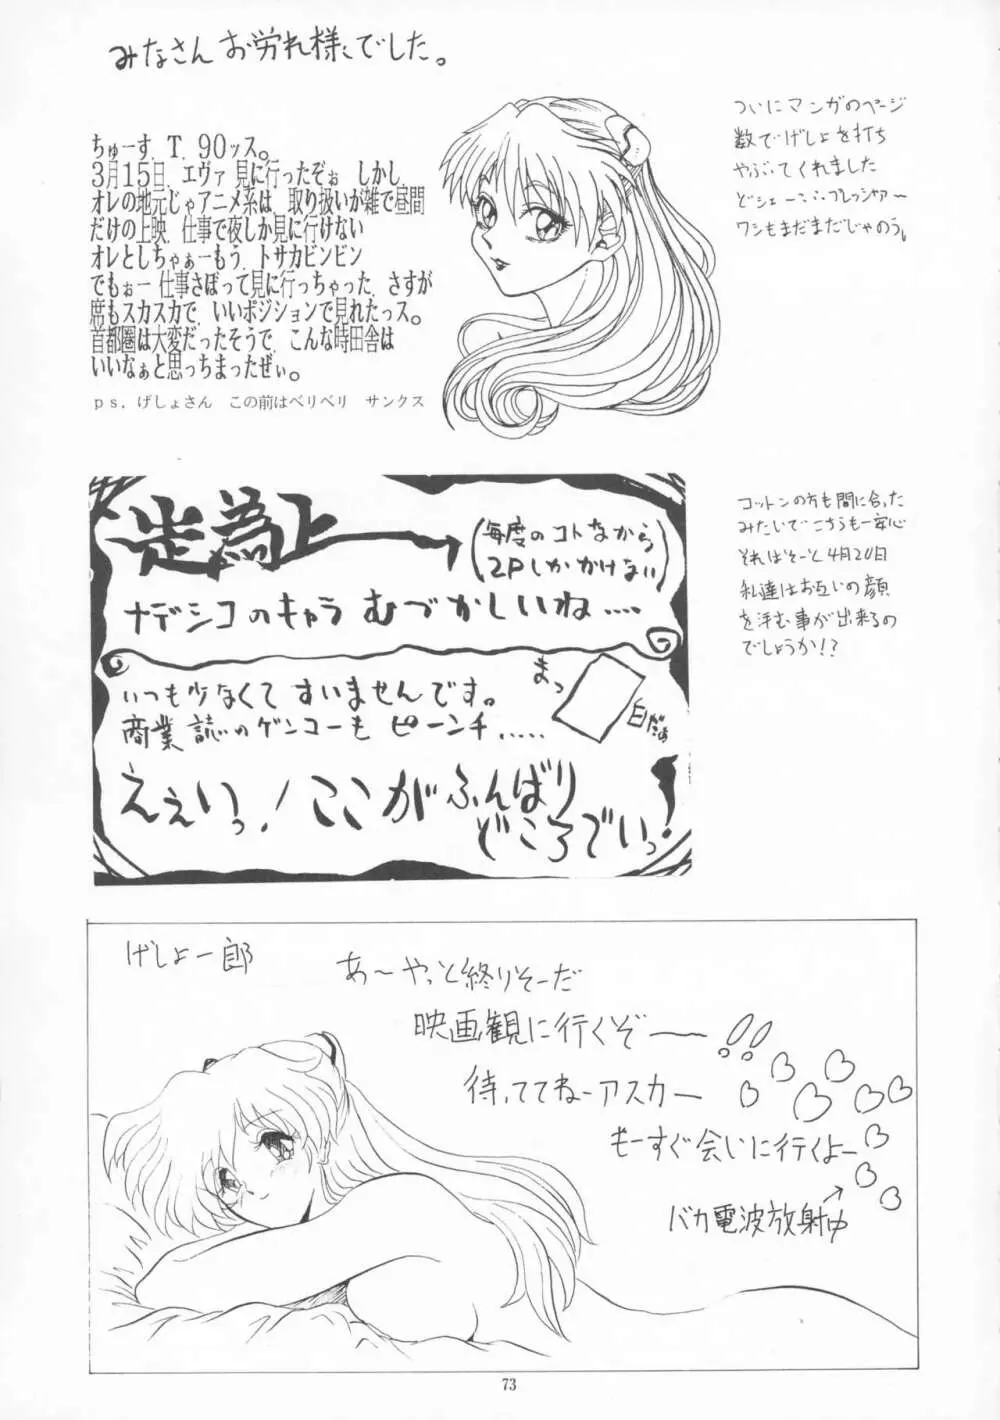 みなさんお労れ様でした。
ちゅーす、T. 90ッス。
3月15日、エヴァ見に行ったぞぉ しかし、
オレの地元じゃアニメ系は、取り扱いが雑で昼間
だけの上映、仕事で夜しか見に行けない
オレとしちゃぁーもう、トサカビンビン
でもぉー仕事さぼって見に行っちゃった、さすが
席もスカスカで、いいポジションで見れたっス。
首都圏は大変だったそうで、こんな時田舎は
いいなぁと思っちまったぜぃ。
ps．げしょさん　この前はベリベリ　サンクス
ついにマンガのページ
数でげしょを打ち
やぶってくれました
どシェー∴∴プレッシャァ～
ワシもまだまだじゃのう。
走為上
(毎度のコトながら
2Pしかかけない)
ナデシコのキャラ むづかしいね‥‥
いつも少なくて すいませんです。
商業誌のゲンコーも ピーンチ‥‥‥
まっ
白だぁ
えぇいっ！ここがふんばり
どころでいっ！
コットンの方も間に合った
みたいでこちらも一安心
それはそーと4月20日
私達はお互いの顔
を汗む事が出来るの
でしょうか！？
げしょ一郎
あ～やっと終りそーだ
映画観に行くぞ――!!
待っててねーアスカー
もーすぐ会いに行くよー
バカ電波放射中
73